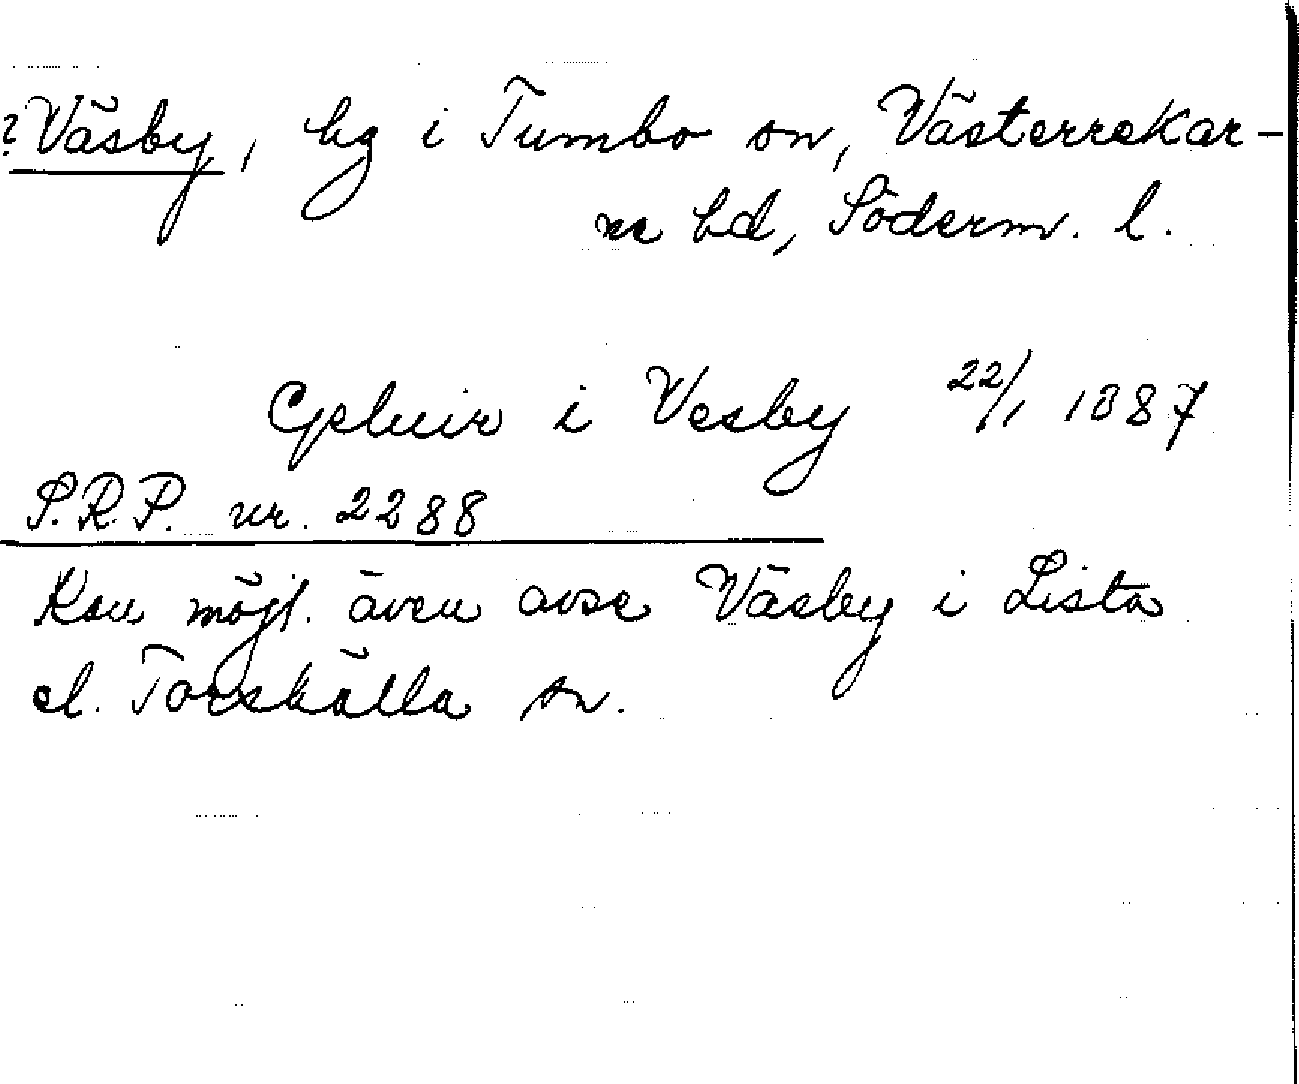 ? Väsby, hg i Tumbo sn, Västerrekar-
ne hd, Söderm. l.
i Vesby 22/1 1387
S.R.P. nr. 2288
Kan möjl. även avse Väsby i Lista
el. Torshälla sn.